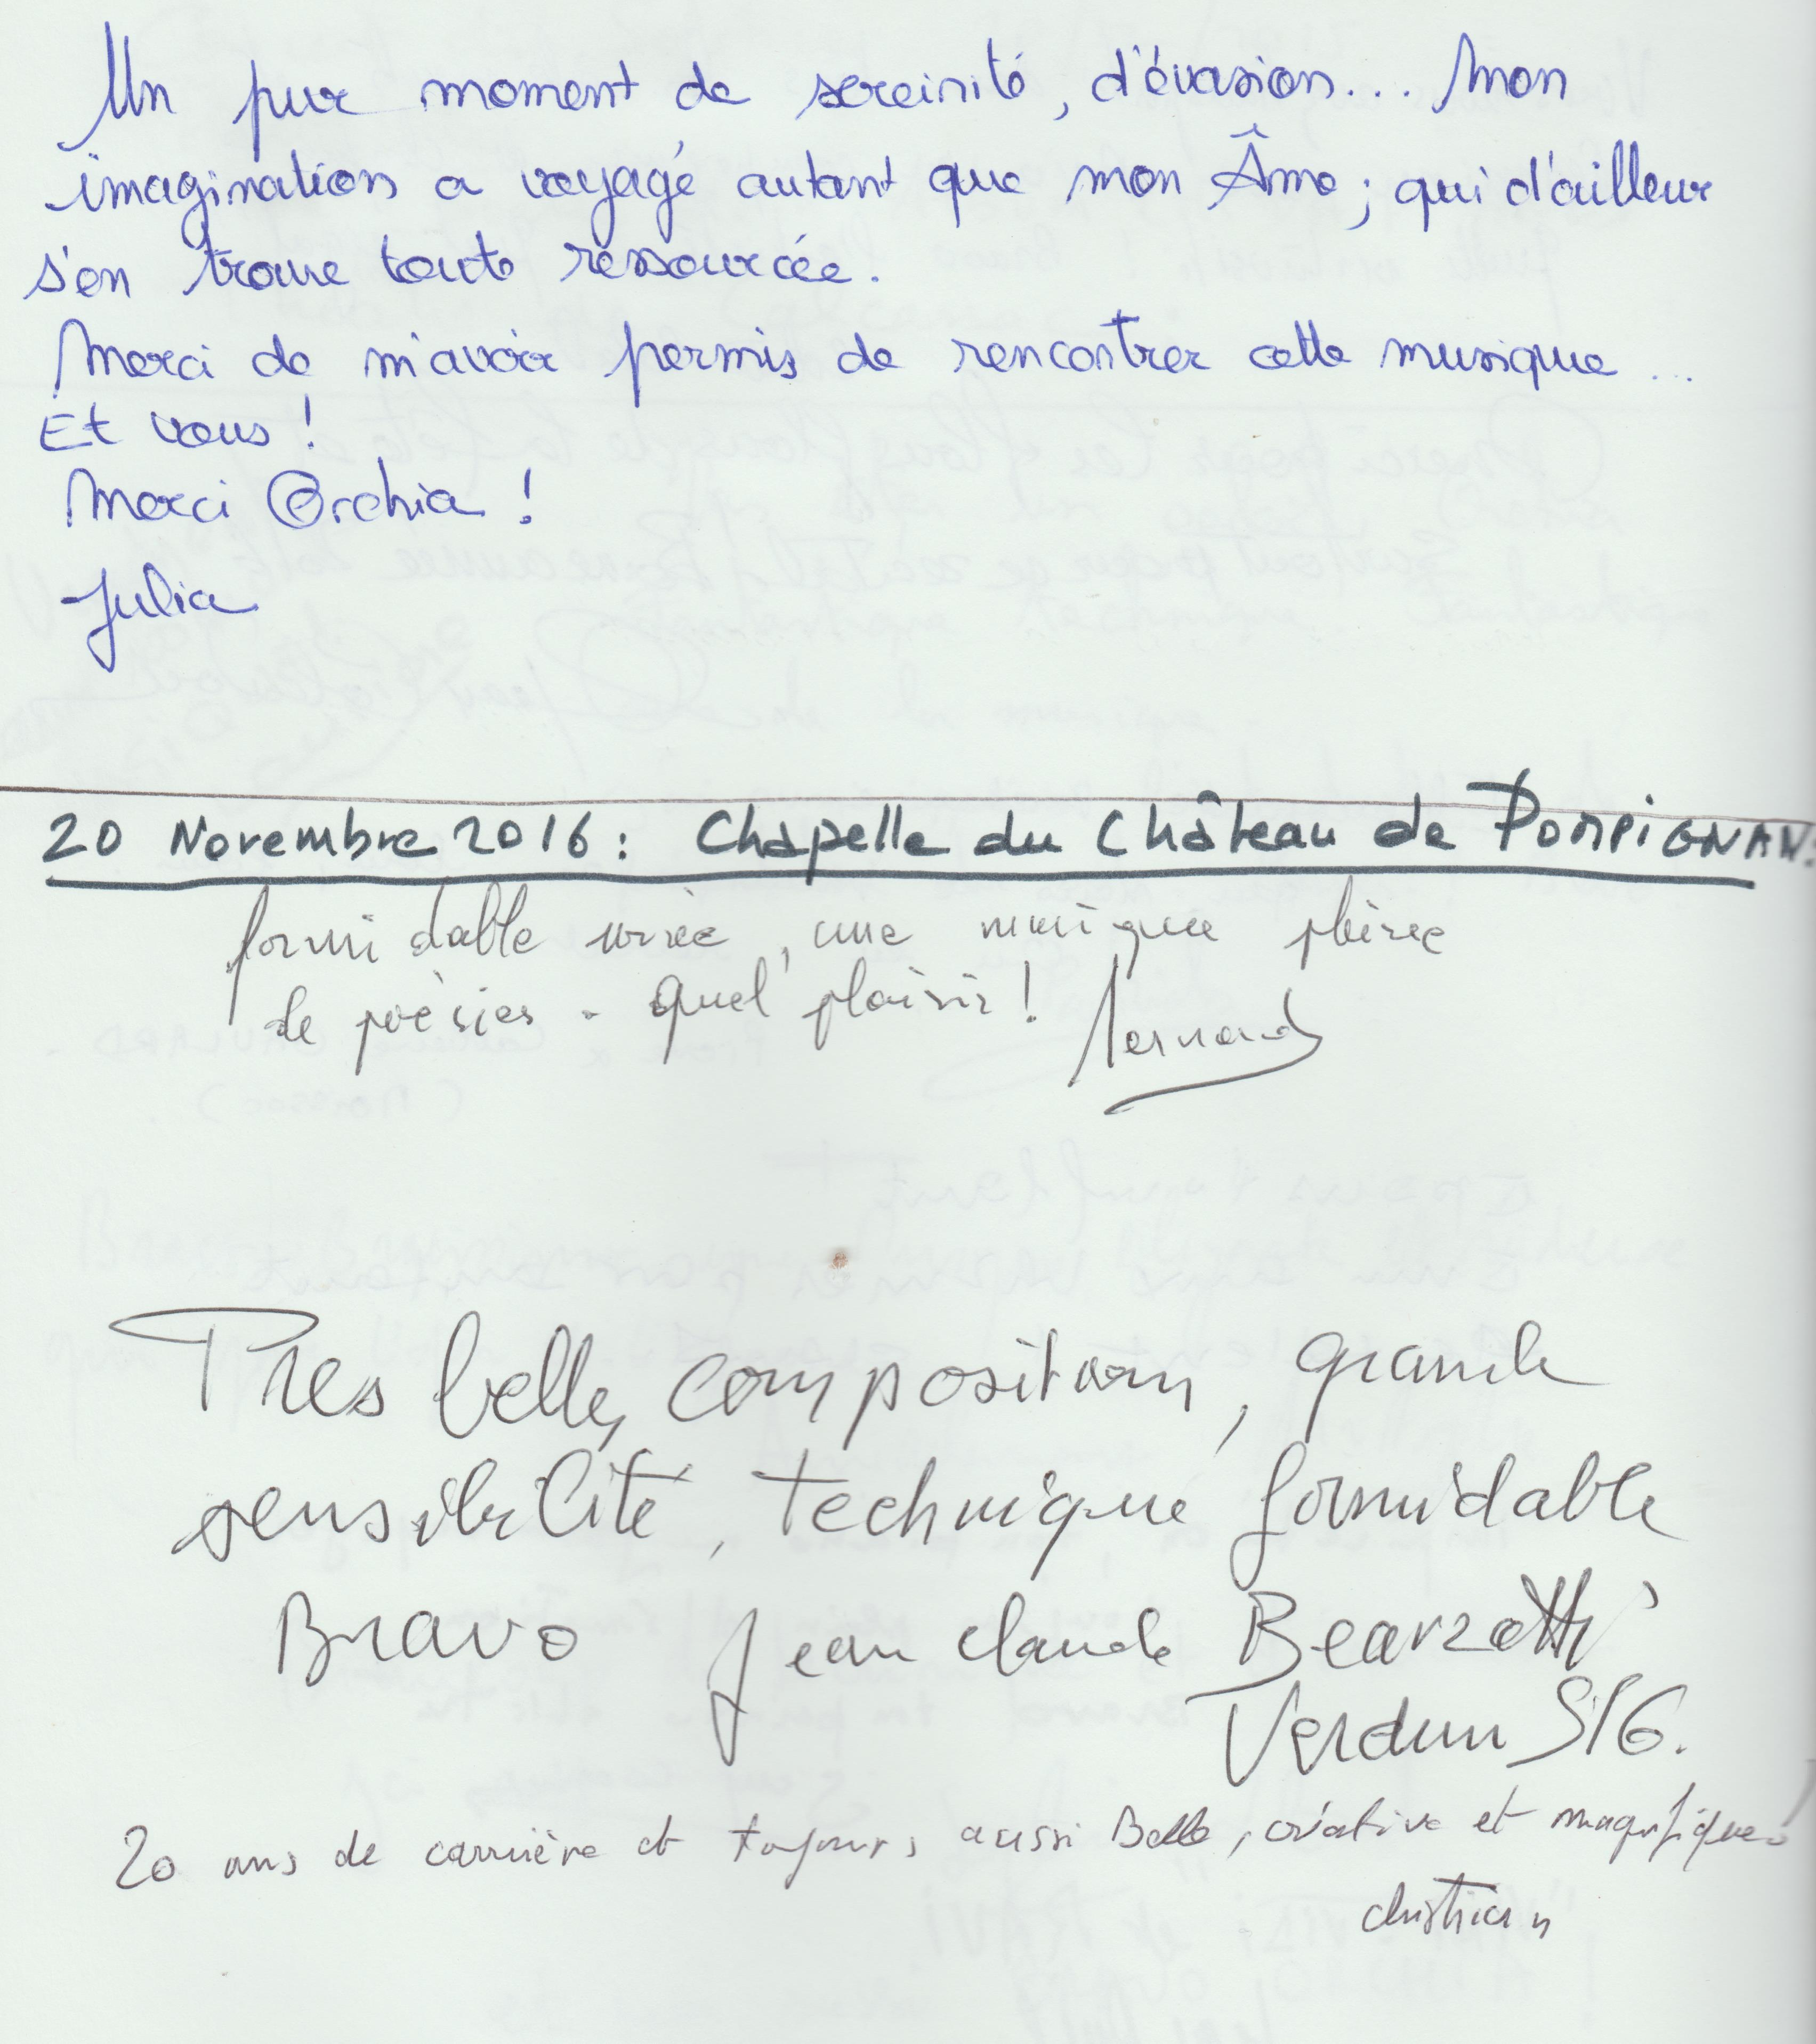 Un pur moment de sereinité, d'évasion... Mon
imagination a voyagé autant que mon Âme; qui d'ailleur
s'en trouve toute ressourcée.
Merci de m'avoir permis de rencontrer cette musique...
Et vous !
Merci Orchia !
Julia
20 Novembre 2016 : Chapelle du Château de POMPIGNAN.
formidable virée, une musique pleine
de poèsies - quel plaisir !
Très belle composition, grande
sensibilité, technique formidable
Bravo Jean Claude Bearzatti
Verdun S/G.
20 ans de carrière et toujours aussi Belle, créative et magnifique !
christian